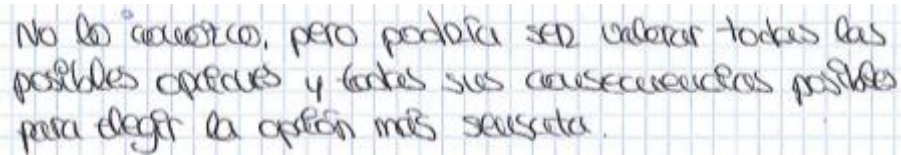 No lo conozco, pero podría ser valorar todas las
posibles opciones y todas sus consecuencias posibles
para elegir la opción más sensata.